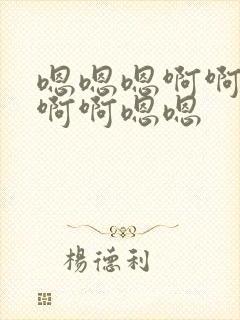 嗯嗯嗯啊啊
啊啊嗯嗯
楊德利